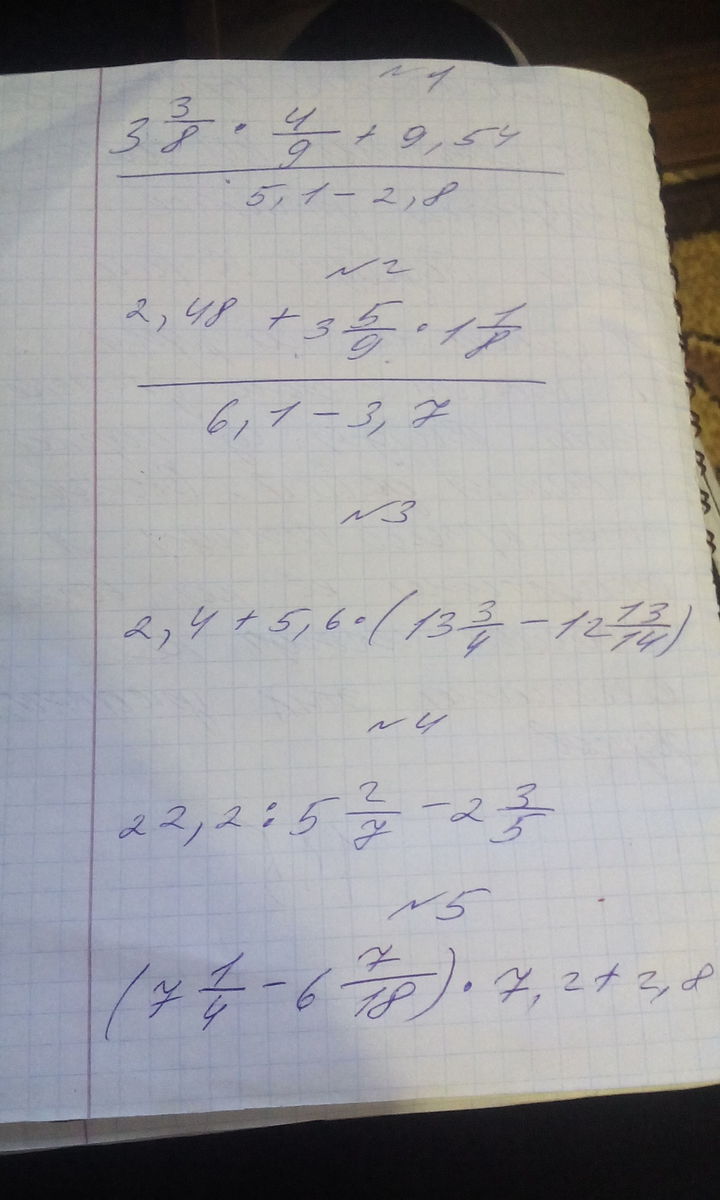 №1
3 3/8 · 4/9 + 9,54
5,1 − 2,8
№2
2,48 + 3 5/9 · 1 1/8
6,1 − 3,7
№3
2,4 + 5,6 · (13 3/4 − 12 13/14)
№4
22,2 : 5 2/7 − 2 3/5
№5
(7 1/4 − 6 7/18) · 7,2 + 2,8